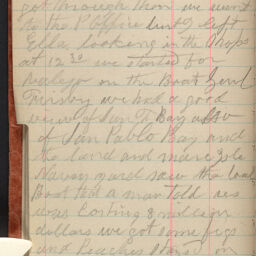 got through then we went
to the P Office but I left
Ella looking in the Shops
at 12 30 we started for
Vallejo on the Boat Genl
Frisby we had a good
view of San F Bay also
of San Pablo Bay and
the land and mare Isle
Navey yard saw the
Boat that a man told us
was Costing 8 million
dollars we got some figs
and Peaches on